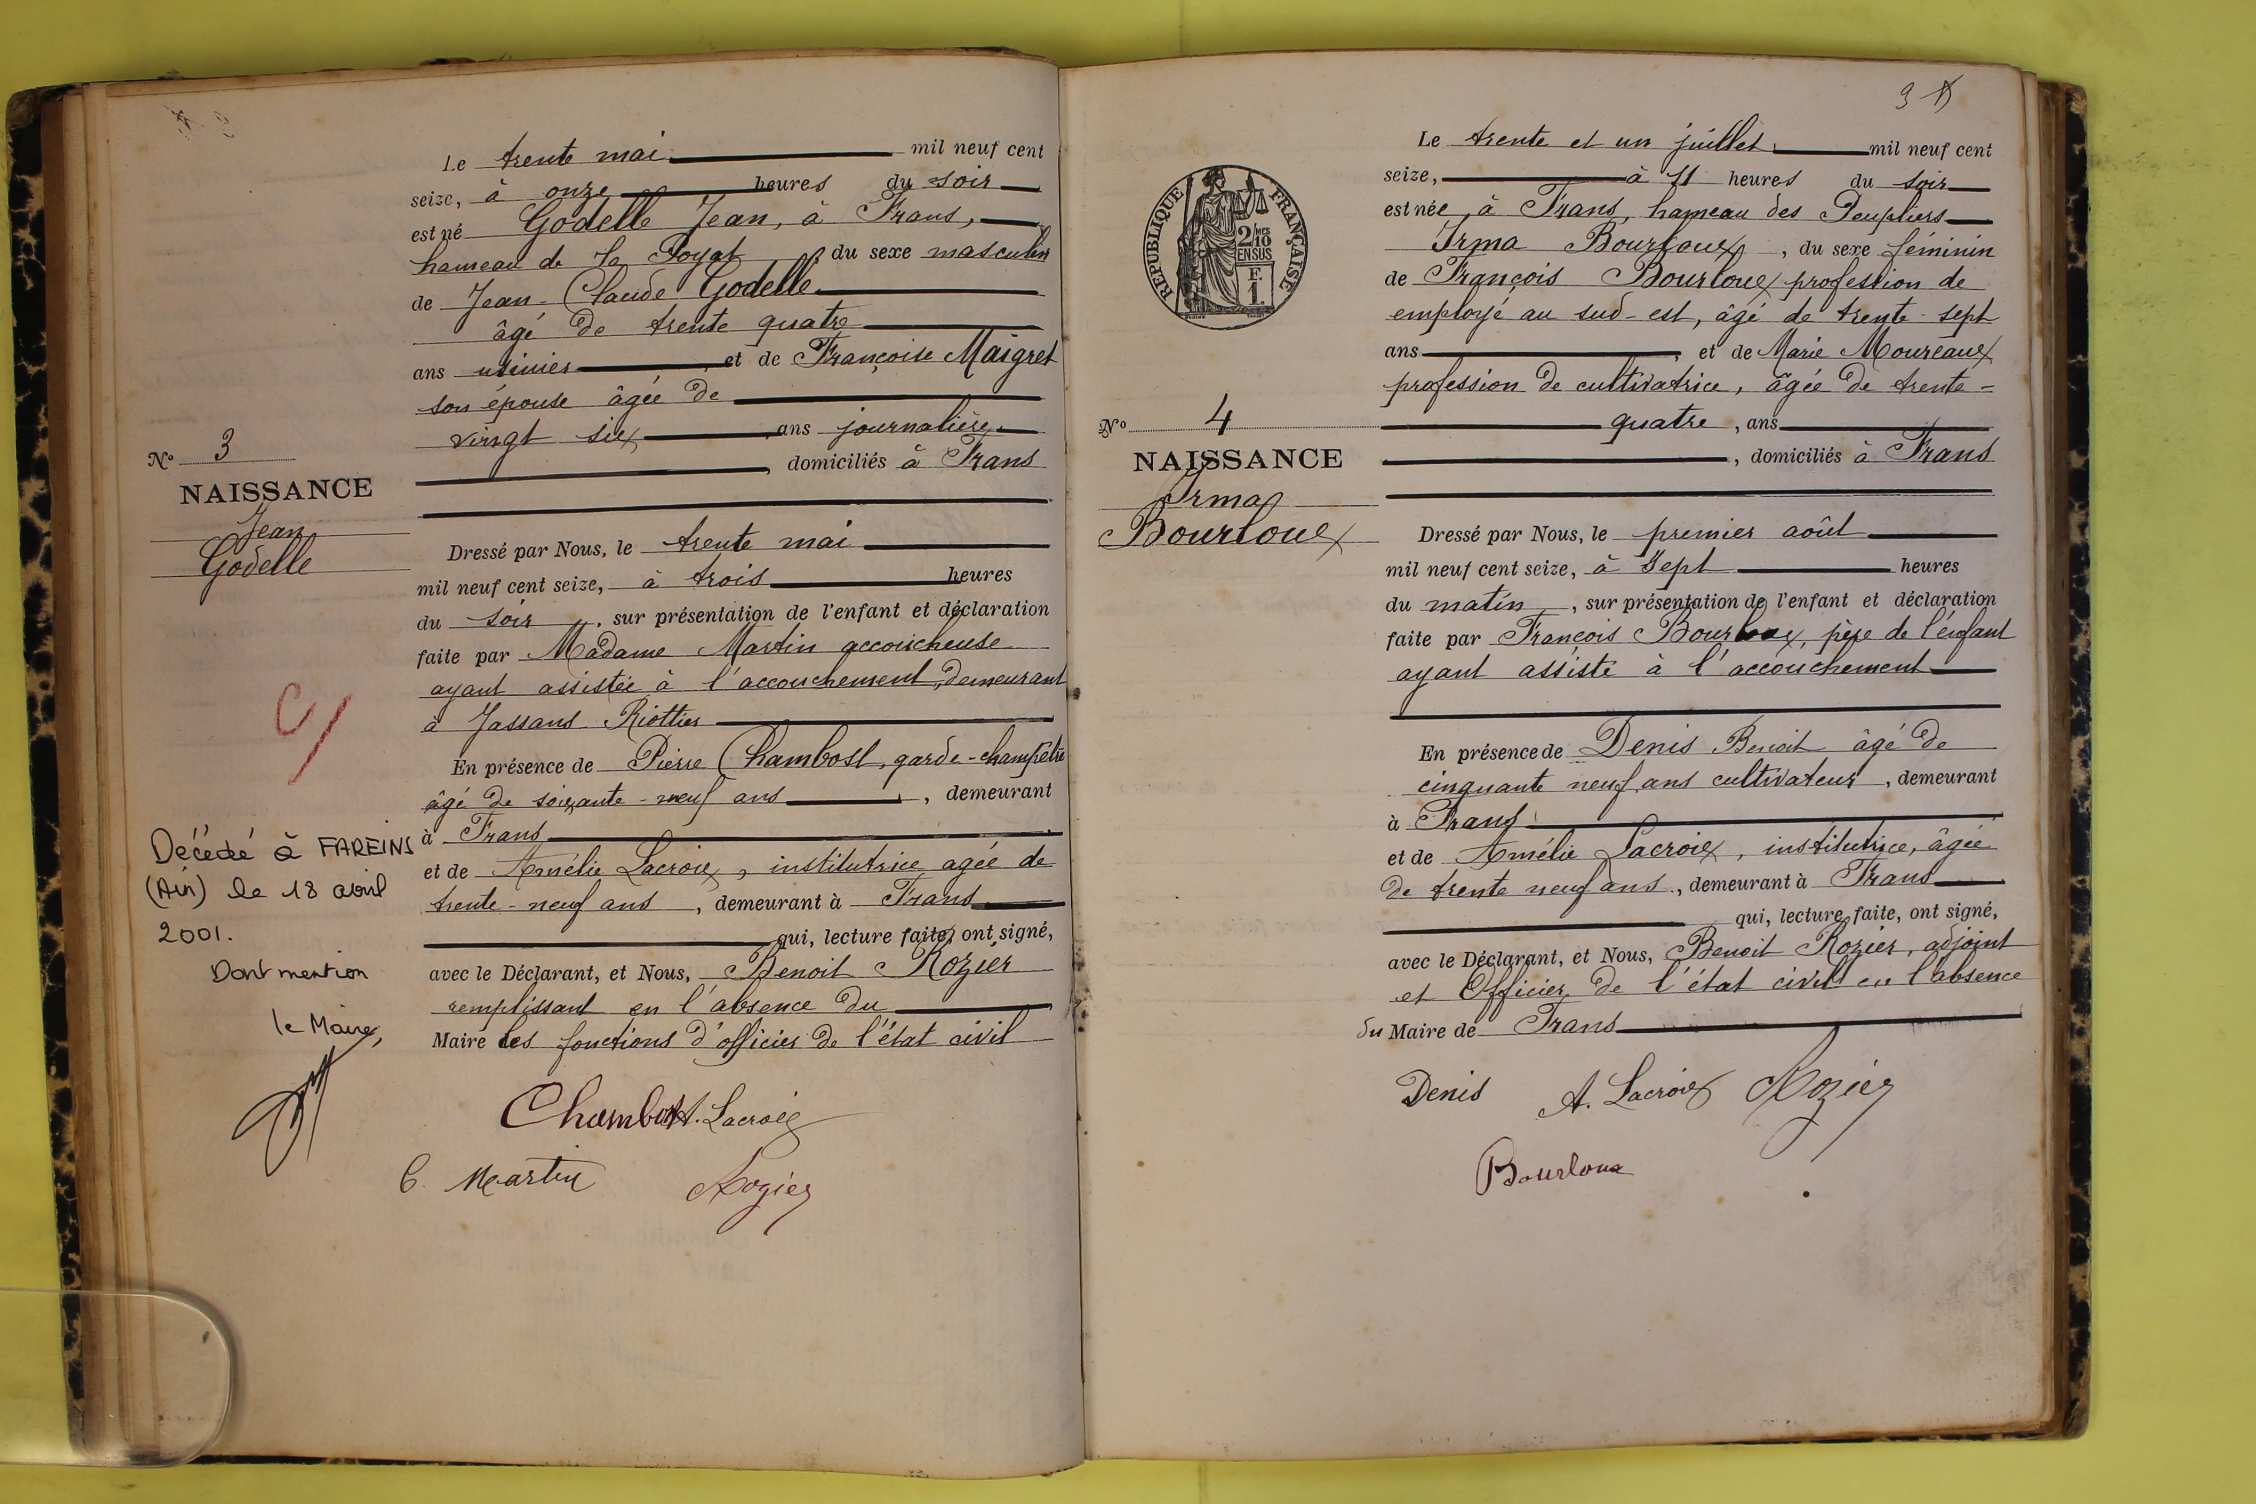 Le trente mai mil neuf cent
seize, à onze heures du soir
est né Godelle Jean, à Frans,
hameau de la Poyat, du sexe masculin
de Jean-Claude Godelle
âgé de trente quatre
ans usinier et de Françoise Maigret
son épouse âgée de
vingt six ans journalière
domiciliés à Frans
N° 3
NAISSANCE
Jean
Godelle
Dressé par Nous, le trente mai
mil neuf cent seize, à trois heures
du soir, sur présentation de l'enfant et déclaration
faite par Madame Martin accoucheuse
ayant assistée à l'accouchement, demeurant
à Jassans Riottier
En présence de Pierre Chambost, garde-champêtre
âgé de soixante-neuf ans, demeurant
à Frans
et de Amélie Lacroix, institutrice agée de
trente-neuf ans, demeurant à Frans
qui, lecture faite, ont signé,
avec le Déclarant, et Nous, Benoit Rozier
remplissant en l'absence du
Maire les fonctions d'officier de l'état civil
Chambost A. Lacroix
C. Martin Rozier
Décédé à FAREINS
(Ain) le 18 avril
2001.
Dont mention
le Maire,
3
RÉPUBLIQUE FRANÇAISE
2/10 MES
EN SUS
F.
1.
Le trente et un juillet mil neuf cent
seize, à 11 heures du soir
est née, à Frans, hameau des Peupliers
Irma Bourloux, du sexe féminin
de François Bourloux profession de
employé au sud-est, âgé de trente-sept
ans, et de Marie Moureaux
profession de cultivatrice, âgée de trente-
quatre, ans
, domiciliés à Frans
N° 4
NAISSANCE
Irma
Bourloux
Dressé par Nous, le premier août
mil neuf cent seize, à sept heures
du matin, sur présentation de l'enfant et déclaration
faite par François Bourloux, père de l'enfant
ayant assisté à l'accouchement
En présence de Denis Benoit âgé de
cinquante neuf ans cultivateur, demeurant
à Frans
et de Amélie Lacroix, institutrice, âgée
de trente neuf ans, demeurant à Frans
qui, lecture faite, ont signé,
avec le Déclarant, et Nous, Benoit Rozier, adjoint
et Officier de l'état civil en l'absence
du Maire de Frans
Denis A. Lacroix Rozier
Bourloux